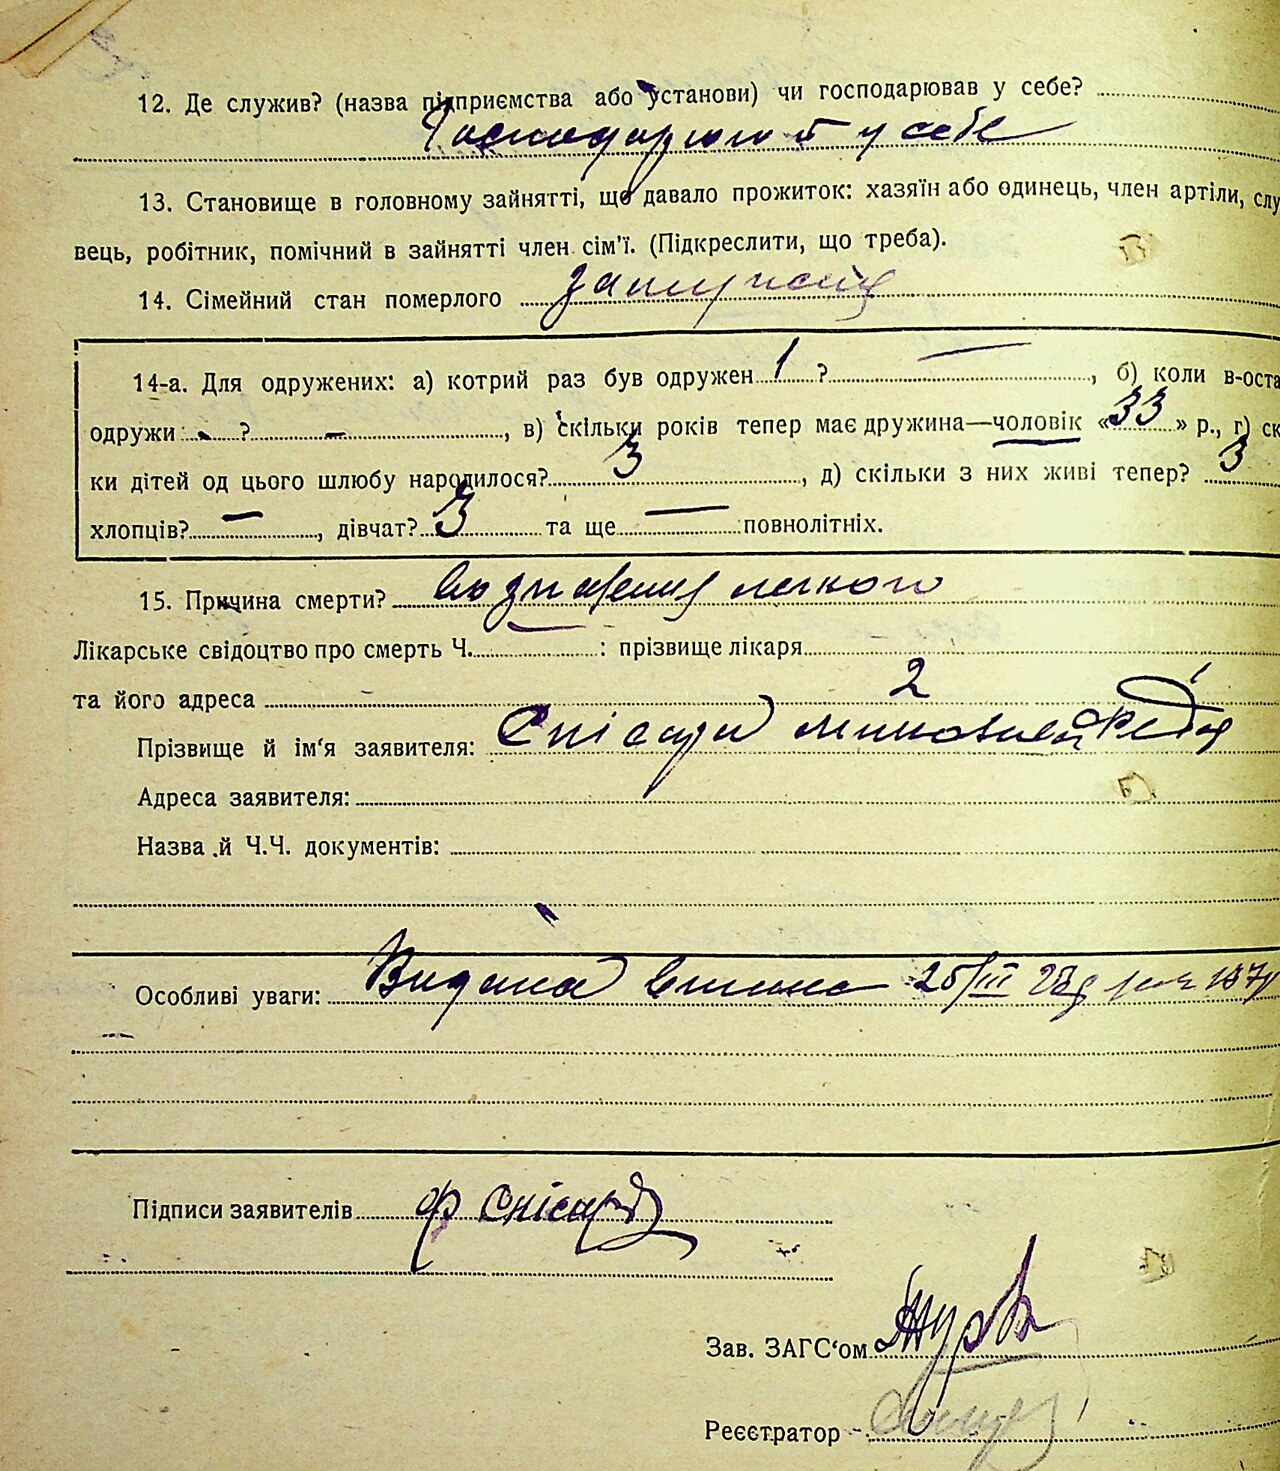 12. Де служив? (назва підприємства або установи) чи господарював у себе?
у себе
13. Становище в головному зайнятті, що давало прожиток: хазяїн або одинець, член артіли, слу
вець, робітник, помічний в зайнятті член сім'ї. (Підкреслити, що треба).
14. Сімейний стан померлого
14-а. Для одружених: а) котрий раз був одружен 1 ? —, б) коли в-оста
одружи - ? -, в) скільки років тепер має дружина—чоловік «33» р., г) ск
ки дітей од цього шлюбу народилося? 3, д) скільки з них живі тепер? 3
хлопців? —, дівчат? 3 та ще — повнолітніх.
15. Причина смерти? легкого
Лікарське свідоцтво про смерть Ч. : прізвище лікаря
та його адреса 2
Прізвище й ім'я заявителя:
Адреса заявителя:
Назва й Ч.Ч. документів:
Особливі уваги: 25/III
Підписи заявителів
Зав. ЗАГС'ом
Реєєтратор -